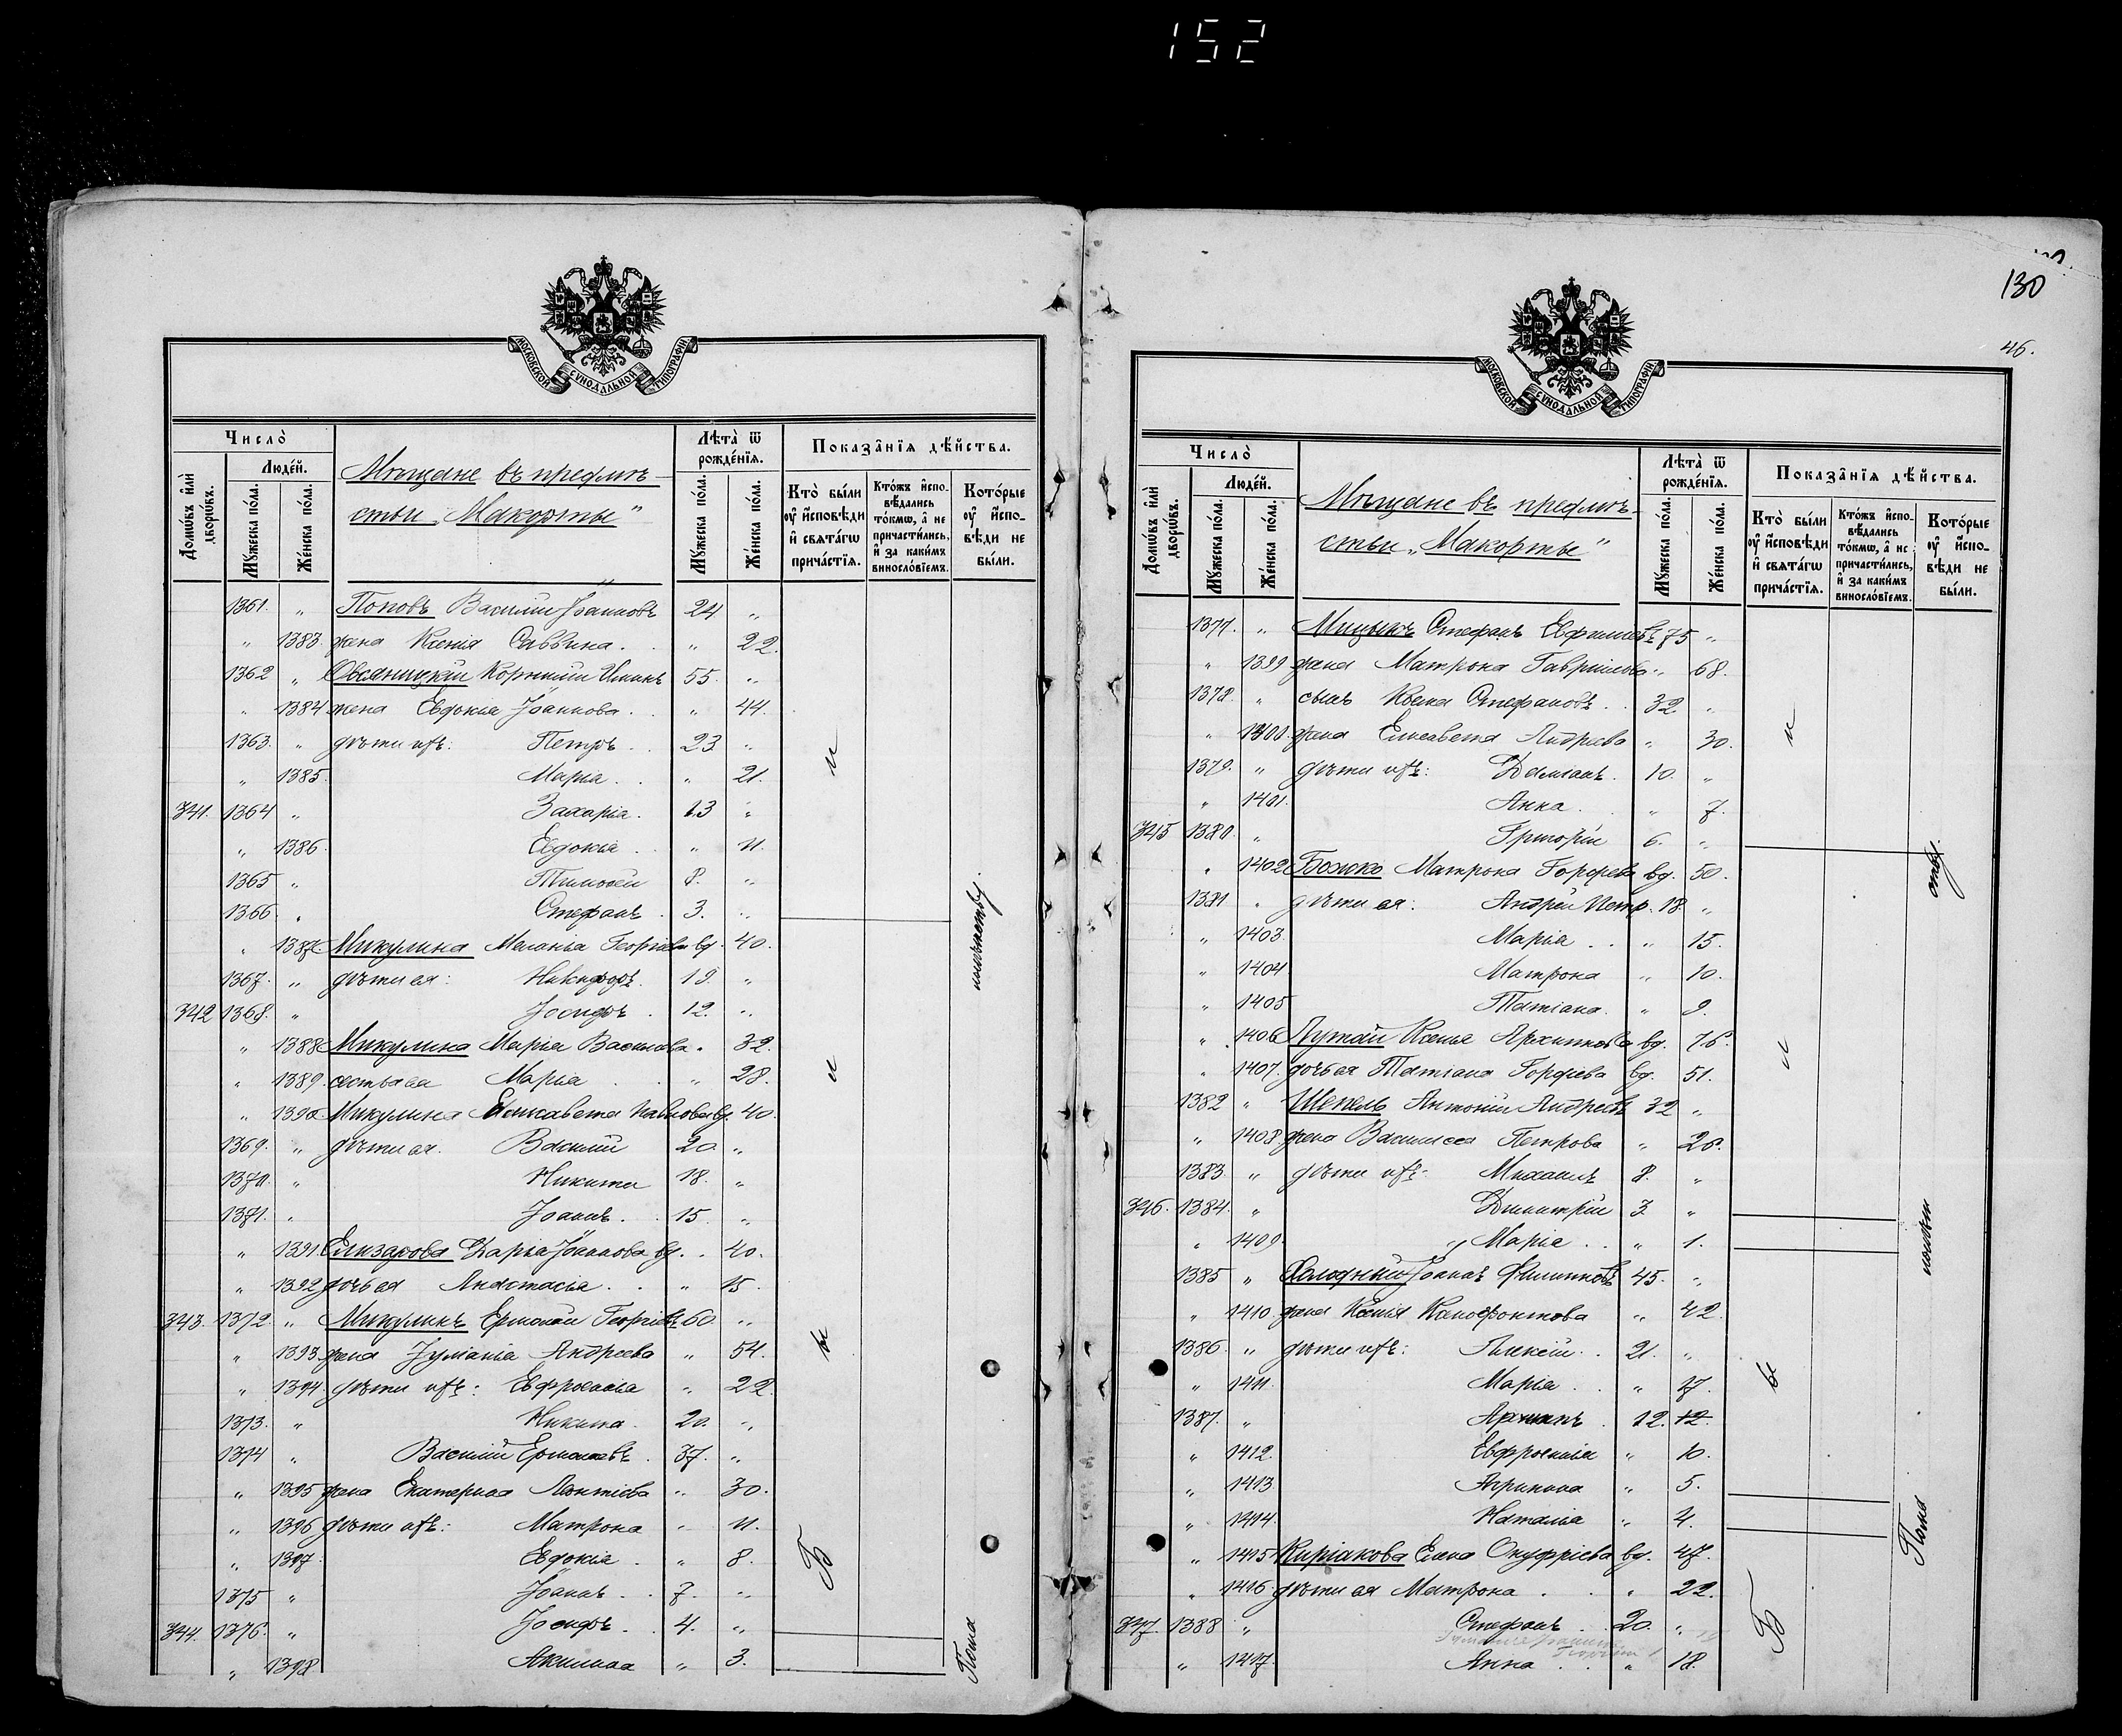 152
МОСКОВСКОЙ СѴНОДАЛЬНОЙ ТИПОГРАФІИ
Число̀
Домѡ́въ и҆лѝ дворѡ́въ.
Люде́й.
Мꙋ́жеска по́ла.
Же́нска по́ла.
Мѣщане въ предмѣ-
стьи „Макорты"
Лѣта̀ ѿ рожде́нїѧ.
Мꙋ́жеска по́ла.
Же́нска по́ла.
Показа̂нїѧ дѣ́йства.
Кто̀ бы́ли ᲂу҆ и҆сповѣди и҆ свѧта́гѡ прича́стїѧ.
Кто́жъ и҆спо-вѣ́дались то́кмѡ, а҆ не причасти́лись, и҆ за каки́мъ винослов́їемъ.
Кото́рые ᲂу҆ и҆спо-вѣди не бы́ли.
1361. „ Поповъ Василій Іоанновъ 24 „
„ 1383 жена Ксенія Саввина. „ 22.
1362 „ Овсяницкій Корнилій 55. „
„ 1384 жена Евдокія Іоаннова. „ 44.
1363. „ дѣти ихъ: Петръ 23 „
„ 1385. Марія „ 21.
341. 1364 „ Захарія. 13 „
„ 1386. Евдокія „ 11.
1365 „ Тимоѳей 8. „
1366 „ Стефанъ 3. „
„ 1387. Микулина Меланія Георгіева вд. 40.
1367. „ дѣти ея: Никифоръ 19. „
342 1368. „ Іосифъ 12. „
„ 1388 Микулина Марія Васильева „ 32.
„ 1389. сестра ея Марія „ 28.
„ 1390 Микулина Елисавета Павлова вд. 40.
1369. „ дѣти ея. Василій 20. „
1370. „ Никита 18. „
1371. „ Іоаннъ 15. „
„ 1391. Елизарова Дарія Іоаннова вд. 40.
„ 1392 дочь ея Анастасія „ 15.
343. 1372. „ Микулинъ Ермолай Георгіевъ 60. „
„ 1393. жена Іуліанія Андреева „ 54.
„ 1394. дѣти ихъ: Евфросинія „ 22.
1373. „ Никита 20. „
1374 „ Василій Ермолаевъ 37. „
„ 1395 жена Екатерина Леонтіева „ 30.
„ 1396 дѣти ихъ: Матрона „ 11.
„ 1397. Евдокія „ 8.
1375 „ Іоаннъ 7. „
344. 1376. „ Іосифъ 4. „
„ 1398 Акилина „ 3.
Б ы и и
130
46.
МОСКОВСКОЙ СѴНОДАЛЬНОЙ ТИПОГРАФІИ
Число̀
Домѡ́въ и҆лѝ дворѡ́въ.
Люде́й.
Мꙋ́жеска по́ла.
Же́нска по́ла.
Мѣщане въ предмѣ-
стьи „Макорты"
Лѣта̀ ѿ рожде́нїѧ.
Мꙋ́жеска по́ла.
Же́нска по́ла.
Показа̂нїѧ дѣ́йства.
Кто̀ бы́ли ᲂу҆ и҆сповѣди и҆ свѧта́гѡ прича́стїѧ.
Кто́жъ и҆спо-вѣ́дались то́кмѡ, а҆ не причасти́лись, и҆ за каки́мъ винослов́їемъ.
Кото́рые ᲂу҆ и҆спо-вѣди не бы́ли.
1377. „ Мицыкъ Стефанъ Евфиміевъ 75 „
„ 1399 жена Матрона Гавриилова „ 68.
1378. „ сынъ Косма Стефановъ 32 „
„ 1400. жена Елисавета Андреева „ 30.
1379. „ дѣти ихъ: Даміанъ. 10. „
„ 1401. Анна „ 7.
345 1380. „ Григорій 6. „
„ 1402 Божко Матрона Гордѣева вд. 50.
1381 „ дѣти ея: Андрей Петр. 18 „
„ 1403. Марія „ 15.
„ 1404 Матрона „ 10.
„ 1405 Татіана „ 9.
„ 1406 Лутай Ксенія Архиппова вд. 76.
„ 1407. дочь ея Татіана Гордѣева вд. 51.
1382 „ Шекель Антоній Андреевъ 32 „
„ 1408 жена Василисса Петрова „ 26.
1383. „ дѣти ихъ: Михаилъ 8. „
346. 1384. „ Димитрій 3 „
„ 1409. Марія „ 1.
1385 „ Холодный Іоаннъ Филипповъ 45. „
„ 1410 жена Ксенія Ксенофонтова „ 42.
1386. „ дѣти ихъ: Алексій 21. „
„ 1411. Марія „ 17.
1387. „ 12. 12.
„ 1412. Евфросинія „ 10.
„ 1413 Агрипина „ 5.
„ 1414. Наталія „ 4.
„ 1415 Киріакова Елена Онуфріева вд. 47.
„ 1416. дѣти ея Матрона „ 22.
347. 1388 „ Стефанъ 20. „
„ 1417. Анна „ 18.
Б ы и и